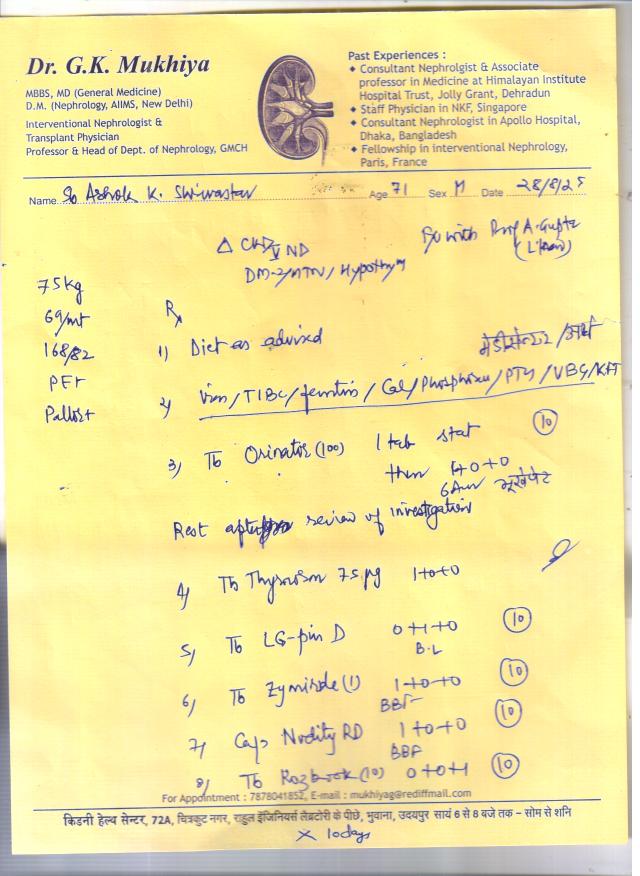 Dr. G.K. Mukhiya
MBBS, MD (General Medicine)
D.M. (Nephrology, AIIMS, New Delhi)
Interventional Nephrologist &
Transplant Physician
Professor & Head of Dept. of Nephrology, GMCH
Past Experiences :
◆ Consultant Nephrolgist & Associate
professor in Medicine at Himalayan Institute
Hospital Trust, Jolly Grant, Dehradun
◆ Staff Physician in NKF, Singapore
◆ Consultant Nephrologist in Apollo Hospital,
Dhaka, Bangladesh
◆ Fellowship in interventional Nephrology,
Paris, France
Name Ashok K. Age 71 Sex M Date 28/8/25
Δ CKD V ND
DM-2/HTN/Hypothy
with Prof A. Gupta
75kg
69/mt
168/82
Pallor+
Rx
1) Diet as advised
2) Iron/TIBC/ferritin/Cal/Phosphorus/PTH/VBG/KFT
3) Tb (100) 1 tab stat (10)
then 1+0+0
6 Am भूखे पेट
Rest after review of investigation
4) Tb 75 µg 1+0+0
5) Tb LG-pin D 0+1+0 (10)
B.L
6) Tb (1) 1+0+0 (10)
BBF
7) Cap RD 1+0+0 (10)
BBF
8) Tb (10) 0+0+1 (10)
For Appointment : 7878041852, E-mail : mukhiyag@rediffmail.com
किडनी हेल्थ सेन्टर, 72A, चित्रकूट नगर, राहुल इंजिनियर्स लेब्रटोरी के पीछे, भुवाना, उदयपुर सायं 6 से 8 बजे तक – सोम से शनि
x 10days